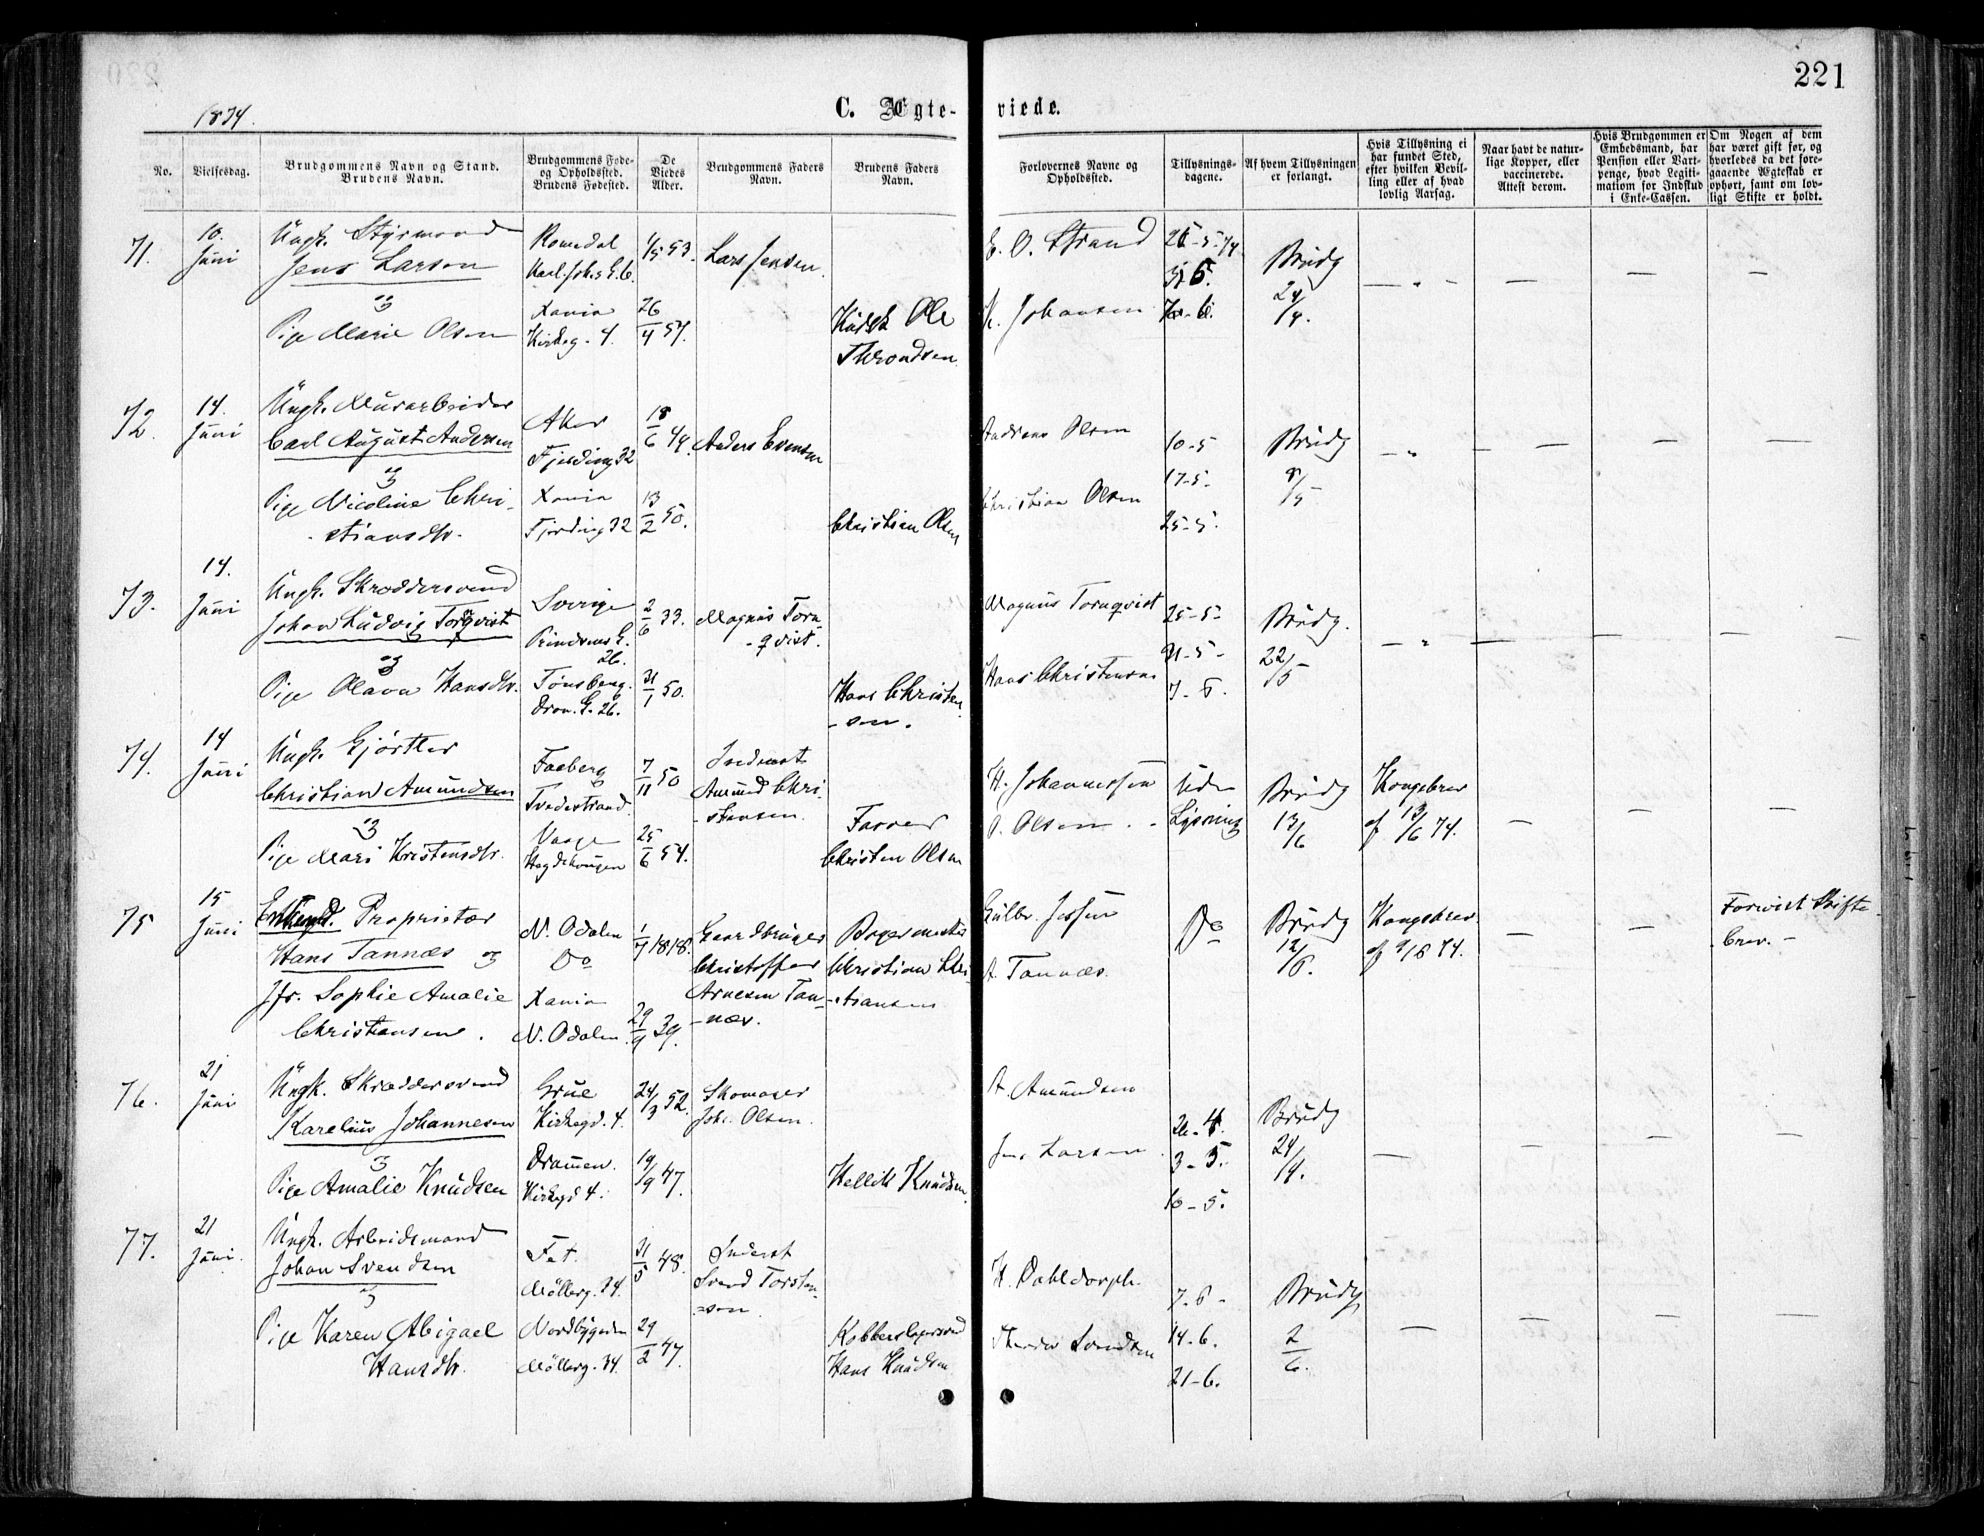 221
1874.
C. Ægte-
viede.
No.
Vielsesdag.
Brudgommens Navn og Stand.
Brudens Navn.
Brudgommens Føde-
og Opholdssted.
Brudens Fødested.
De
Viedes
Alder.
Brudgommens Faders
Navn.
Brudens Faders
Navn.
Forlovernes Navne og
Opholdssted.
Tillysnings-
dagene.
Af hvem Tillysningen
er forlangt.
Hvis Tillysning ei
har fundet Sted,
efter hvilken Bevil-
ling eller af hvad
lovlig Aarsag.
Naar havt de natur-
lige Kopper, eller
vaccinerede.
Attest derom.
Hvis Brudgommen er
Embedsmand, har
Pension eller Vart-
penge, hvad Legiti-
mation for Indskud
i Enke-Cassen.
Om Nogen af dem
har været gift før, og
hvorledes da det fore-
gaaende Ægteskab er
ophørt, samt om lov-
ligt Skifte er holdt.
71.
10.
Juni
Ungk. Styrmand
Jens Larsen
og
Pige Marie Olsen
Romedal
Karl Johs G. 6.
Xania
Kirkeg. 4.
1/5 53.
26/4 54.
Lars Jensen.
Kudsk Ole
Throndsen
E. O. Strand
K. Johansen
Brudg
24/4.
72.
14.
Juni
Ungk. Murarbeider
Carl August Andersen
og
Pige Nicoline Chri-
stiansdtr.
Aker
Fjerding 32
Xania
Fjerding 32
18/6 49.
13/2 50.
Anders Evensen
Christian Olsen
Andreas Olsen
Christian Olsen
10-5
17-5.
25-5.
Brudg
8/5
73.
14.
Juni
Ungk. Skræddersvend
Johan Ludvig Tornqvist
og
Pige Olava Hansdtr.
Sverige
Prindsens G.
26.
Tønsberg.
Dron. G. 26.
2/6 33.
31/1 50.
Magnus Torn-
qvist.
Hans Christen-
sen.
Magnus Tornqvist
Hans Christensen
25-5-
31-5-
7-6.
Brudg.
22/5
74.
14
Juni
Ungk. Gjørtler
Christian Amundsen
og
Pige Mari Kristensdtr.
Faaberg
Tvedestrand.
Vaage
Hegdehaugen
7/11 50
25/6 54.
Inderst
Amund Chri-
stensen.
Farver
Christen Olsen
H. Johannessen
O. Olsen
Uden
Lysning
Brudg
13/6
Kongebrev
af 13/6 74.
75
15
Juni
Enkemd. Proprietær
Hans Tannæs og
Jfr. Sophie Amalie
Christiansen.
N. Odalen
Do
Xania
N. Odalen.
1/7 1818.
29/9 39.
Gaardbruger
Christoffer
Arnesen Tan-
næs.
Bogermester
Christian Chri-
stiansen
Gulbr. Jessen
A. Tannæs.
Do
Brudg
12/6.
Kongebrev
af 9/6 74.
Forevist Skifte-
brev.
76.
21
Juni
Ungk. Skræddersvend
Karelius Johannesen
og
Pige Amalie Knudsen
Grue
Kirkegd. 4.
Drammen.
Kirkegd 4.
24/3 52.
19/9 47.
Skomager
Johs. Olsen.
Hellik Knudsen
A. Amundsen
Jens Larsen
26-4.
3-5.
10-5.
Brudg
24/4.
77.
21
Juni.
Ungk. Arbeidsmand
Johan Svendsen
og
Pige Karen Abigael
Hansdtr.
Fet.
Møllerg. 34.
Nordbygden
Møllerg. 34.
31/5 48.
29/2 47.
Inderst
Svend Torsten-
sen
Kobberslagersvend
Hans Knudsen
H. Dahldorph.
7-6-
14-6.
21-6.
Brudg
2/6.